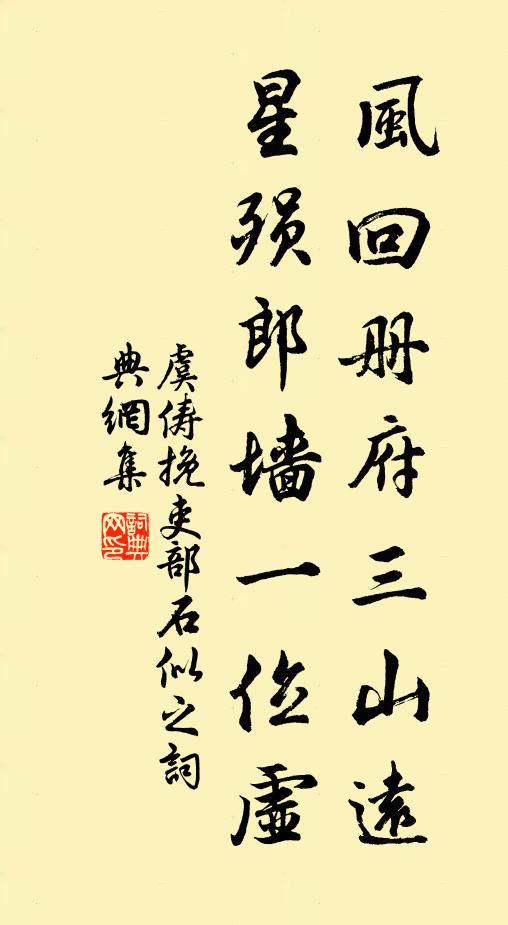 風回册府三山遠
星殞郎墙一位虛
虞俦挽吏部石似之詞
典網集
詞典网印